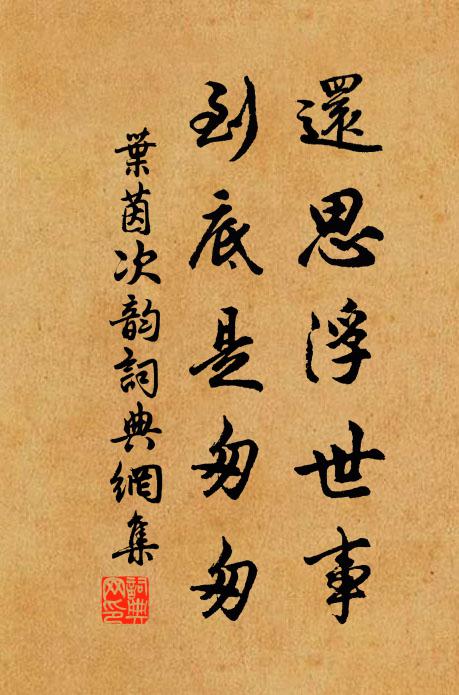 還思浮世事
到底是匆匆
葉茵次韵詞典網集
詞典網印